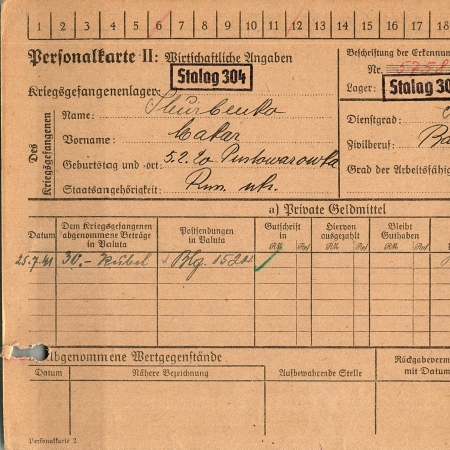 1 2 3 4 5 6 7 8 9 10 11 12 13 14 15 16 17 18
Personalkarte II: Wirtschaftliche Angaben
Beschriftung der Erkennun
Nr.
Kriegsgefangenenlager: Stalag 304
Lager: Stalag 30
Des Kriegsgefangenen
Name:
Dienstgrad:
Vorname: Makar
Zivilberuf: Ba
Geburtstag und -ort: 5.2.20 Pustowarowka
Grad der Arbeitsfähig
Staatsangehörigkeit: Russ. ukr.
a) Private Geldmittel
Datum
Dem Kriegsgefangenen abgenommene Beträge in Valuta
Postsendungen in Valuta
Gutschrift in
RM Rpf
Hiervon ausgezahlt
RM Rpf
Bleibt Guthaben
RM Rpf
25.7.41 30.- Rubel
Abgenommene Wertgegenstände
Datum
Nähere Bezeichnung
Aufbewahrende Stelle
Rückgabeverm
mit Datum
Personalkarte 2